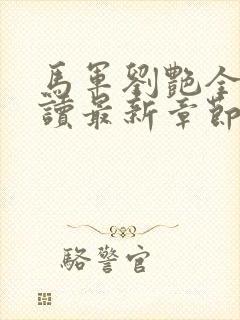 馬軍劉艷全
讀最新章節
駱警官